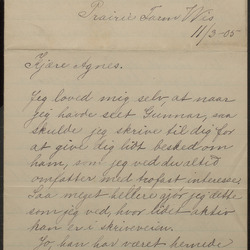 Prairie Farm Wis
11/3-05
Kjære Agnes.
Jeg loved mig selv, at naar
jeg havde seet Gunnar, saa
skulde jeg skrive til dig for
at give dig lidt besked om
ham, som jeg ved du altid
omfatter med trofast interesse.
Saa meget hellere gjør jeg dette
som jeg ved, hvor lidet aktiv
han er i skriveveien.
Jo, han har været hernede